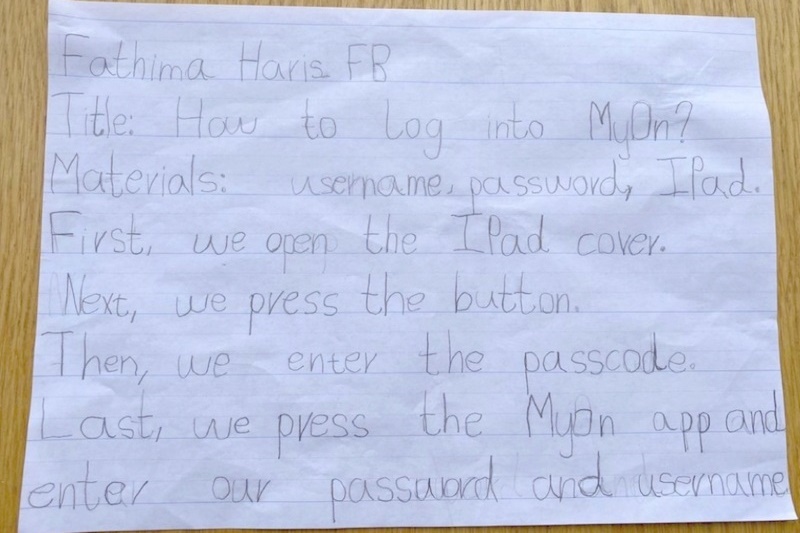 Fathima Haris FB
Title: How to Log into MyOn?
Materials: username, password, IPad.
First, we open the IPad cover.
Next, we press the button.
Then, we enter the passcode.
Last, we press the MyOn app and
enter our password and username